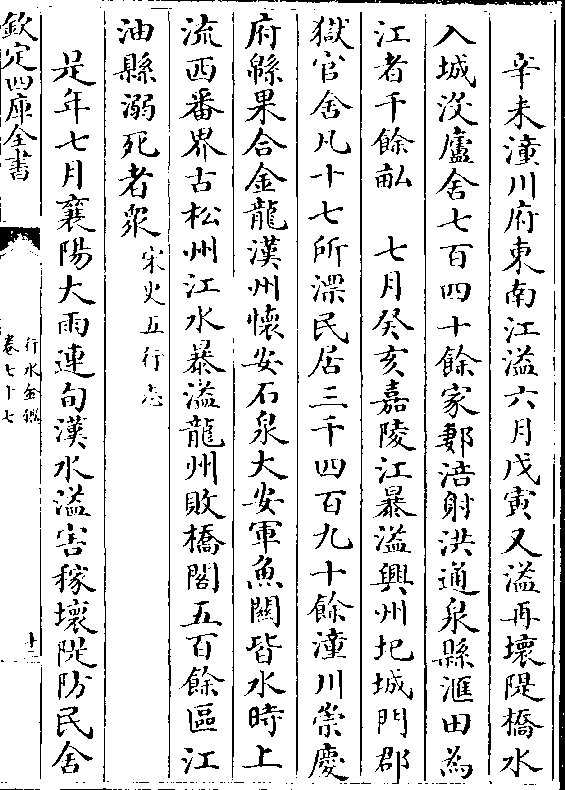 辛未潼川府東南江溢六月戊寅又溢再壞隄橋水
入城没廬舍七百四十餘家郪涪射洪通泉縣滙田為
江者千餘畝　七月癸亥嘉陵江暴溢興州圮城門郡
獄官舍凡十七所漂民居三千四百九十餘潼川崇慶
府緜果合金龍漢州懷安石泉大安軍魚關皆水時上
流西番界古松州江水暴溢龍州敗橋閣五百餘區江
油縣溺死者衆宋史五行志
是年七月襄陽大雨連旬漢水溢害稼壞隄防民舍
欽定四庫全書
行水金鑑
卷七十七